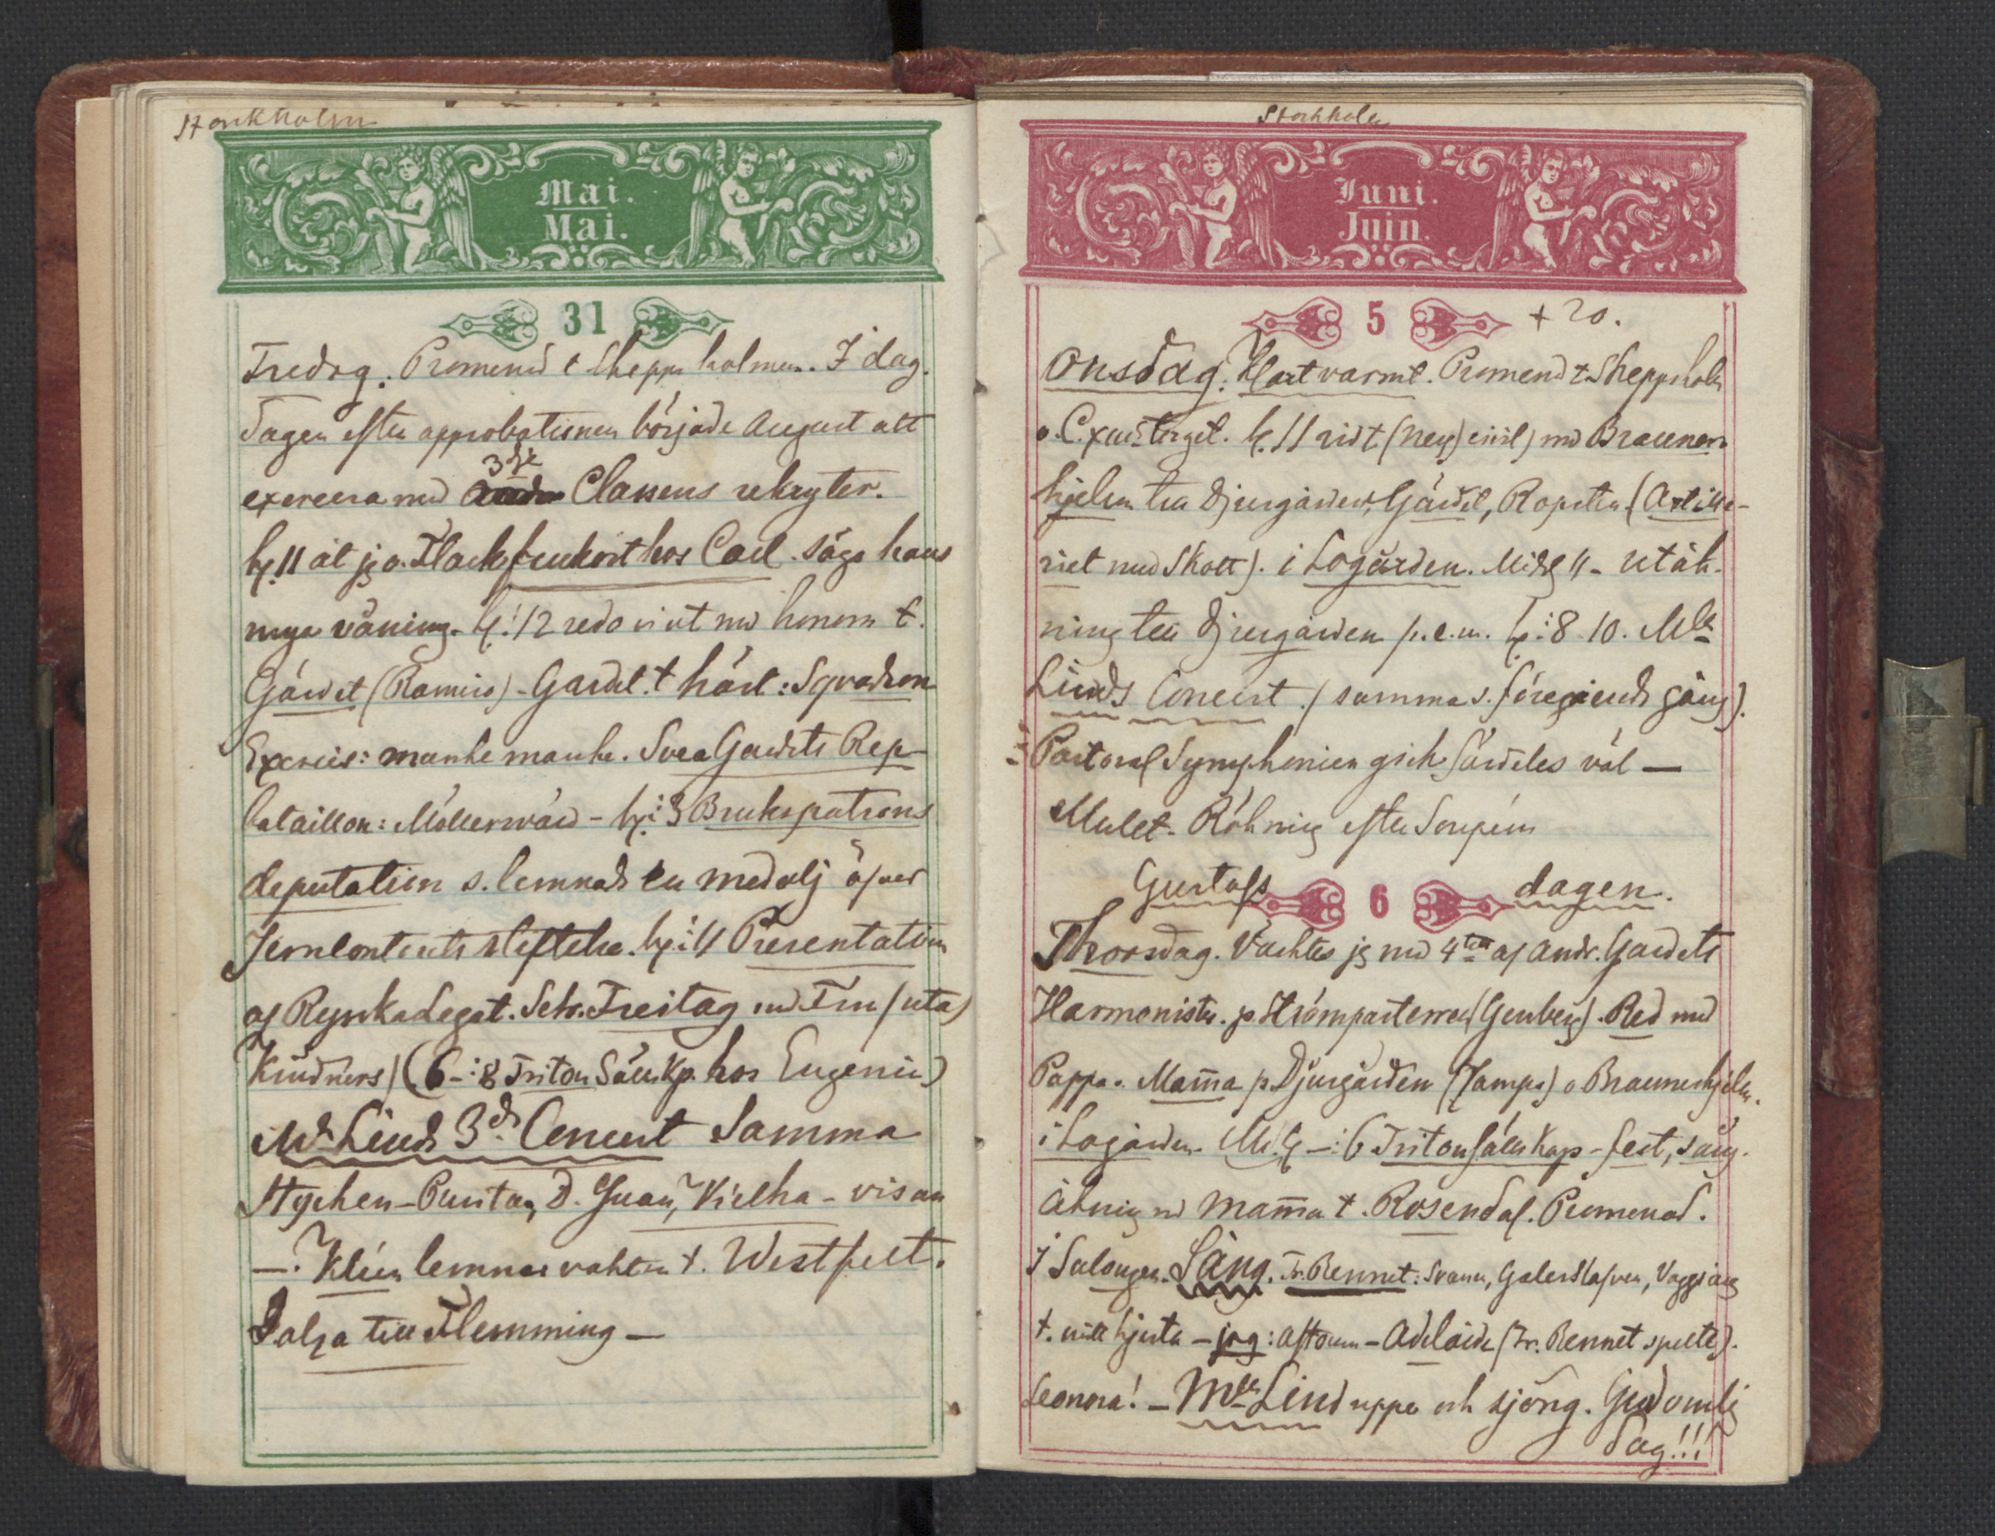 Stockholm
Mai.
Mai.
31
Fredag. Promenad t Skeppsholmen. I dag.
Dagen efter approbationen började August att
exercera med 3dje Classens rekryter.
kl. 11 åt jg o. Flach frukost hos Carl. Sågo hans
nya våning. kl. 12 redo vi ut md honom t.
Gärdet (Ramiro) - Gardet t häst: Sqvadron
Exercis: manke manke. Svea Gardets Rep-
bataillon: Möllerswärd - kl: 3 Brukspatrons
deputation s. lemnade en medalj öfver
Jernkontorets stiftelse. kl: 4 Presentation
af Ryska Legat. Sekr. Freitag md Fru (uta
Kindners) (6-:8 Triton Sällskp. hos Eugenie)
Mlle Linds 3de Concert Samma
Stycken - Puritan, D. Juan, Kielha - visan
—. Klein lemnar vakten t. Westfelt.
Salza till Flemming —
Stockholm
Juni.
Juin.
5
+ 20.
Onsdag. Klart varmt. Promend t. Skeppsholm
o. C. XIII torget. kl. 11 ridt (Ney) civil) md Brauner-
hjelm till Djurgården, Gärdet, Ropsten (Artille-
riet med Skott). i Logården. Mid kl 4 - utåk-
ning till Djurgården p. e. m. kl: 8-10. Mlle
Linds Concert. (samma s. föregående gång).
Pastoral Symphonien gick särdeles väl —
Mulet. Rökning efter Soupén
Gustafs
6
dagen.
Thorsdag. Väcktes jg md 4ten af Andr. Gardets
Harmonister. p Strömparterren (Genberg). Red md
Pappa o. Mamma p. Djurgården (Zampa) o Braunerhjelm.
i Logården. M. kl -: 6 Tritonsällskap - fest, sång.
Åkning md Mamma t. Rosendal. Promenad.
I Salongen. Sång. Fr. Bennet: Svanen, Galerslafven, Vaggsång
t. mitt hjerta - jag: Aftonen - Adelaide (Fr. Bennet spelte).
Leonora! - Mlle Lind uppe och sjöng. Gudomlig
Dag!!!